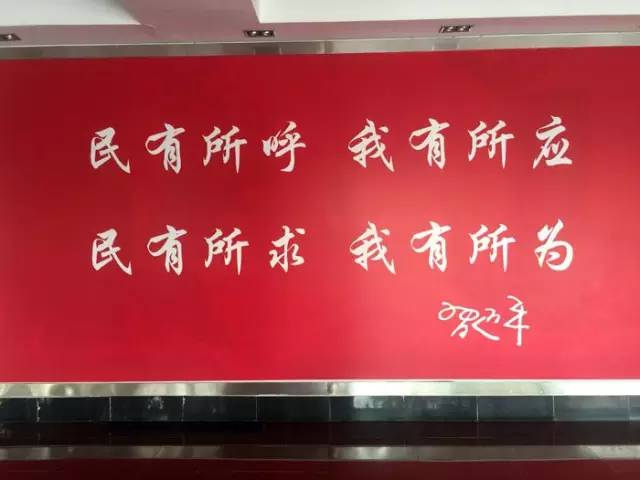 民有所呼 我有所应
民有所求 我有所为
习近平